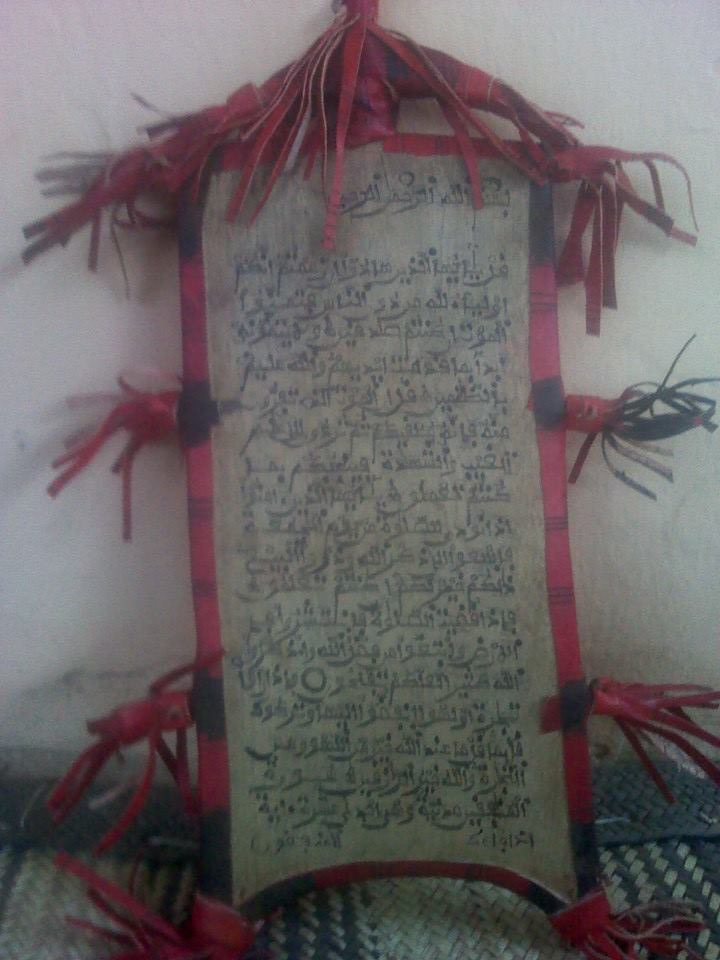 بسم الله الرحمن الرحيم
قل يأيها الذين هادوا إن زعمتم أنكم
أولياء لله من دون الناس فتمنوا
الموت إن كنتم صدقين ولا يتمنونه
أبدا بما قدمت أيديهم والله عليم
بالظلمين قل إن الموت الذي تفرون
منه فإنه ملقيكم ثم تردون إلى علم
الغيب والشهدة فينبئكم بما
كنتم تعملون يأيها الذين ءامنوا
إذا نودي للصلوة من يوم الجمعة
فاسعوا إلى ذكر الله وذروا البيع
ذلكم خير لكم إن كنتم تعلمون
فإذا قضيت الصلوة فانتشروا في
الأرض وابتغوا من فضل الله واذكروا
الله كثيرا لعلكم تفلحون وإذا رأوا
تجرة أو لهوا انفضوا إليها وتركوك
قائما قل ما عند الله خير من اللهو ومن
التجرة والله خير الرزقين سورة
المنفقين مدنية وهي عشرة ءاية
إذا جاءك المنفقون